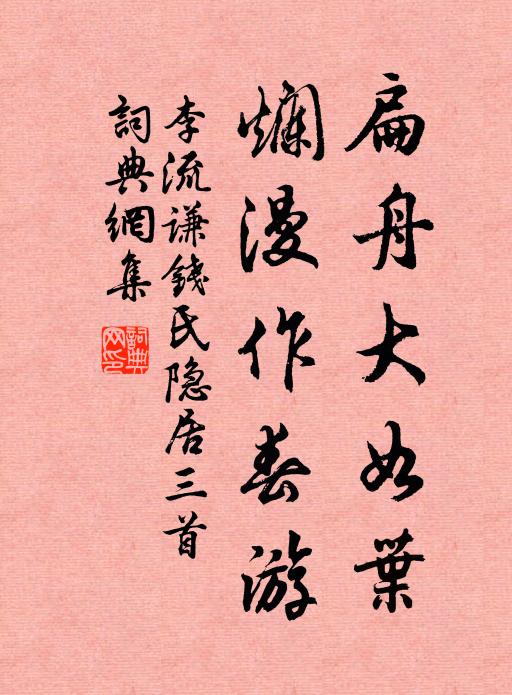 扁舟大如葉
爛漫作春游
李流谦錢氏隐居三首
詞典網集
詞典网印